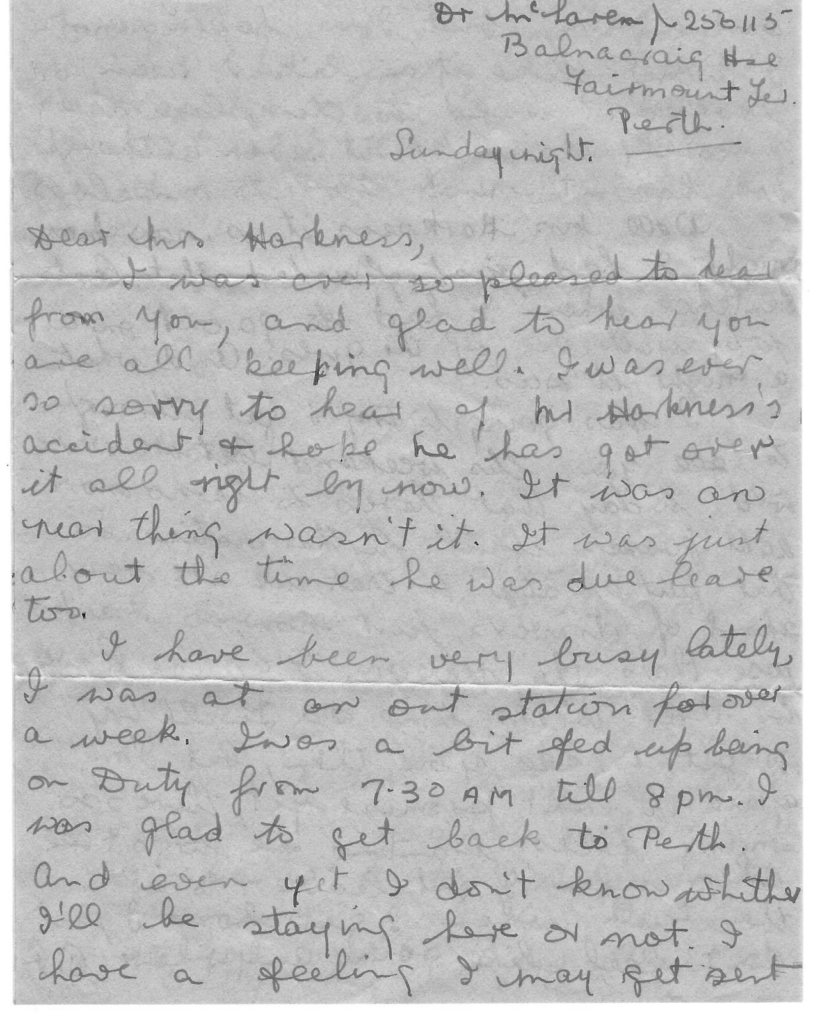 Dr McLaren J. 256115
Balnacraig Hse
Fairmount Ter.
Perth.
Sunday night.
Dear Mrs Harkness,
I was ever so pleased to hear
from you, and glad to hear you
are all keeping well. I was ever
so sorry to hear of Mr Harkness's
accident & hope he has got over
it all right by now. It was an
near thing wasn't it. It was just
about the time he was due leave
too.
I have been very busy lately,
I was at an out station for over
a week. I was a bit fed up being
on Duty from 7.30 AM till 8 pm. I
was glad to get back to Perth.
And even yet I don't know whither
I'll be staying here or not. I
have a feeling I may get sent